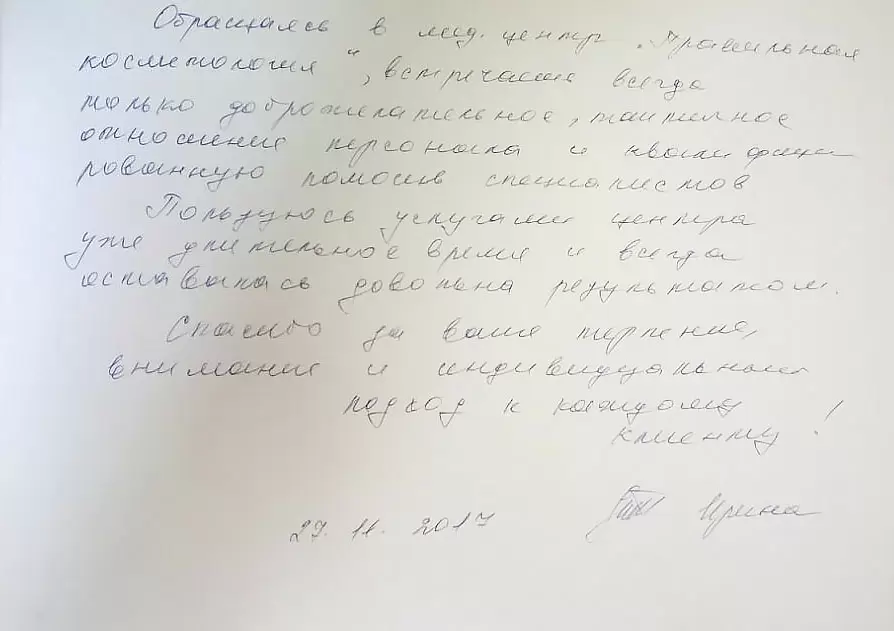 Обращаясь в мед. центр „Правильная
косметология", встречаешь всегда
только доброжелательное, тактичное
отношение персонала и квалифици
рованную помощь специалистов
Пользуюсь услугами центра
уже длительное время и всегда
оставалась довольна результатом.
Спасибо за ваше терпение,
внимание и индивидуальный
подход к каждому
клиенту !
27. 11. 2017 Ирина